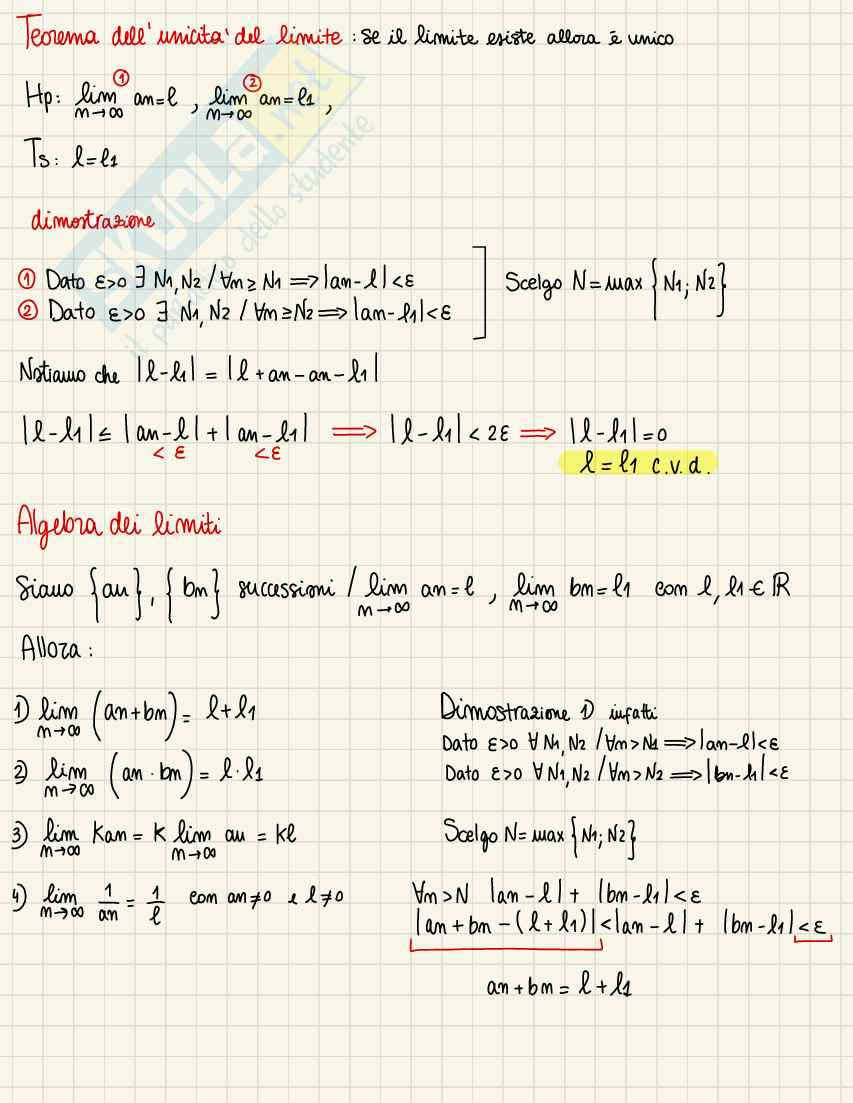 Teorema dell'unicita' del limite : se il limite esiste allora è unico
Hp: lim n→∞ an = l ① , lim n→∞ an = l1 ② ,
Ts: l = l1
dimostrazione
① Dato ε>0 ∃ N1, N2 / ∀n ≥ N1 ⟹ |an - l| < ε
② Dato ε>0 ∃ N1, N2 / ∀n ≥ N2 ⟹ |an - l1| < ε
Scelgo N = max {N1; N2}
Notiamo che |l - l1| = |l + an - an - l1|
|l - l1| ≤ |an - l| + |an - l1| ⟹ |l - l1| < 2ε ⟹ |l - l1| = 0
< ε < ε
l = l1 c.v.d.
Algebra dei limiti
Siano {an}, {bn} successioni / lim n→∞ an = l , lim n→∞ bn = l1 con l, l1 ∈ ℝ
Allora :
1) lim n→∞ (an + bn) = l + l1
2) lim n→∞ (an · bn) = l · l1
3) lim n→∞ Kan = K lim n→∞ an = Kl
4) lim n→∞ 1/an = 1/l con an ≠ 0 e l ≠ 0
Dimostrazione 1) infatti
Dato ε>0 ∀ N1, N2 / ∀n > N1 ⟹ |an - l| < ε
Dato ε>0 ∀ N1, N2 / ∀n > N2 ⟹ |bn - l1| < ε
Scelgo N = max {N1; N2}
∀n > N |an - l| + |bn - l1| < ε
|an + bn - (l + l1)| < |an - l| + |bn - l1| < ε
an + bn = l + l1
SKUOLA.net
il paradiso dello studente